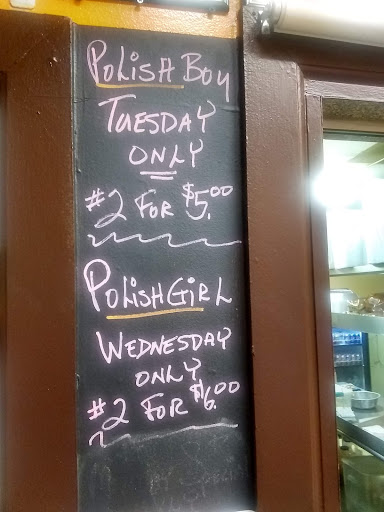 Polish Boy
Tuesday
only
#2 For $5.00
Polish Girl
Wednesday
only
#2 For $6.00